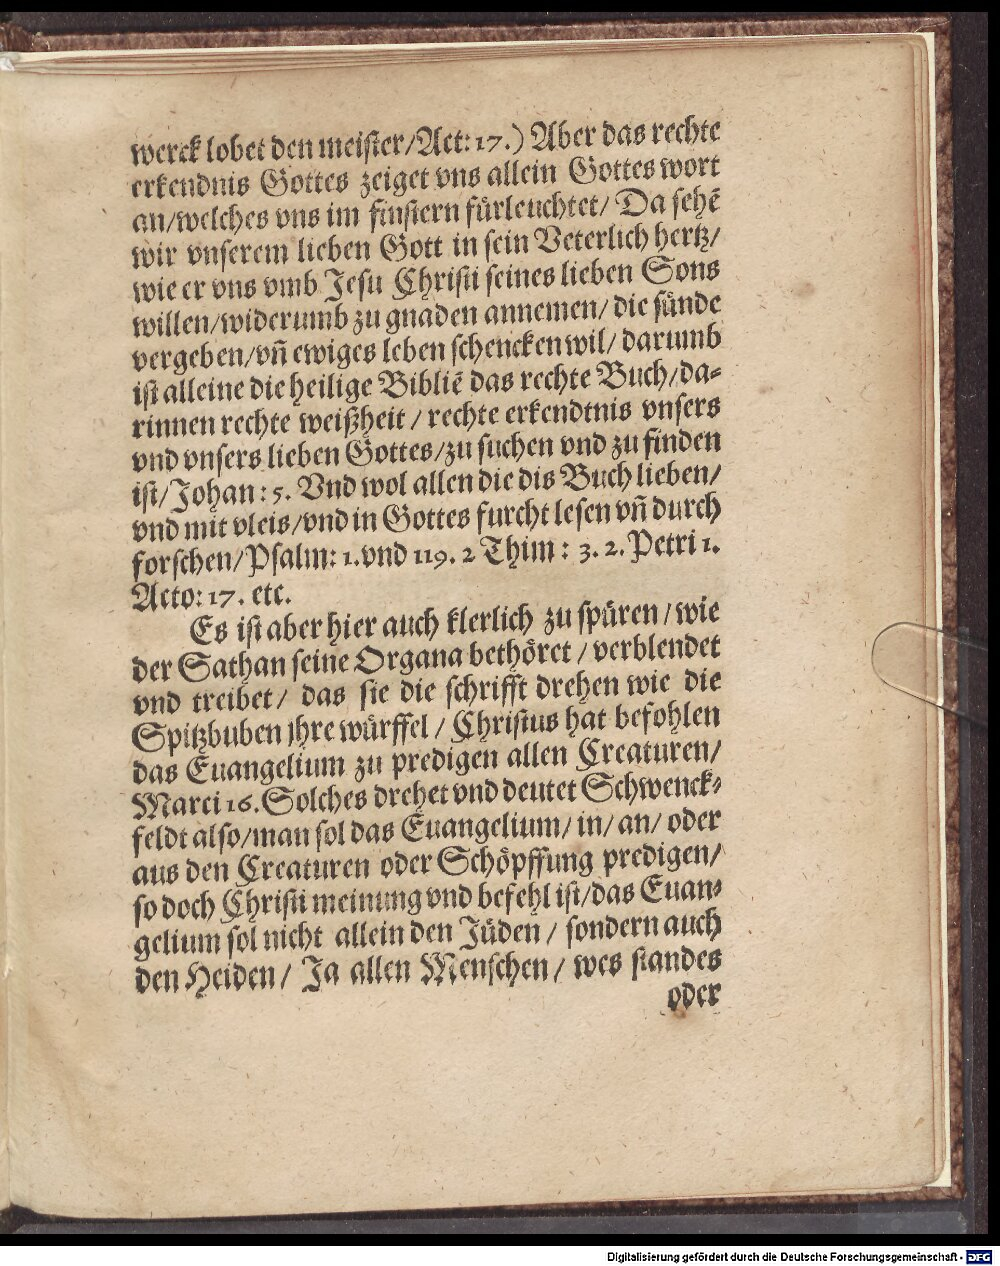 werck lobet den meister/Act: 17.) Aber das rechte
erkendnis Gottes zeiget vns allein Gottes wort
an/welches vns im finstern fürleuchtet/ Da sehē
wir vnserem lieben Gott in sein Veterlich hertz/
wie er vns vmb Jesu Christi seines lieben Sons
willen/widerumb zu gnaden annemen/ die sünde
vergeben/vñ ewiges leben schencken wil/ darumb
ist alleine die heilige Bibliē das rechte Buch/da-
rinnen rechte weißheit / rechte erkendtnis vnsers
vnd vnsers lieben Gottes/zu suchen vnd zu finden
ist/Johan: 5. Vnd wol allen die dis Buch lieben/
vnd mit vleis/vnd in Gottes furcht lesen vñ durch
forschen/Psalm: 1. vnd 119. 2 Thim: 3. 2. Petri 1.
Acto: 17. etc.
Es ist aber hier auch klerlich zu spüren / wie
der Sathan seine Organa bethöret / verblendet
vnd treibet/ das sie die schrifft drehen wie die
Spitzbuben jhre würffel / Christus hat befohlen
das Euangelium zu predigen allen Creaturen/
Marci 16. Solches drehet vnd deutet Schwenck-
feldt also/man sol das Euangelium/ in/ an/ oder
aus den Creaturen oder Schöpffung predigen/
so doch Christi meinung vnd befehl ist/das Euan-
gelium sol nicht allein den Jüden / sondern auch
den Heiden/ Ja allen Menschen/ wes standes
oder
Digitalisierung gefördert durch die Deutsche Forschungsgemeinschaft - DFG